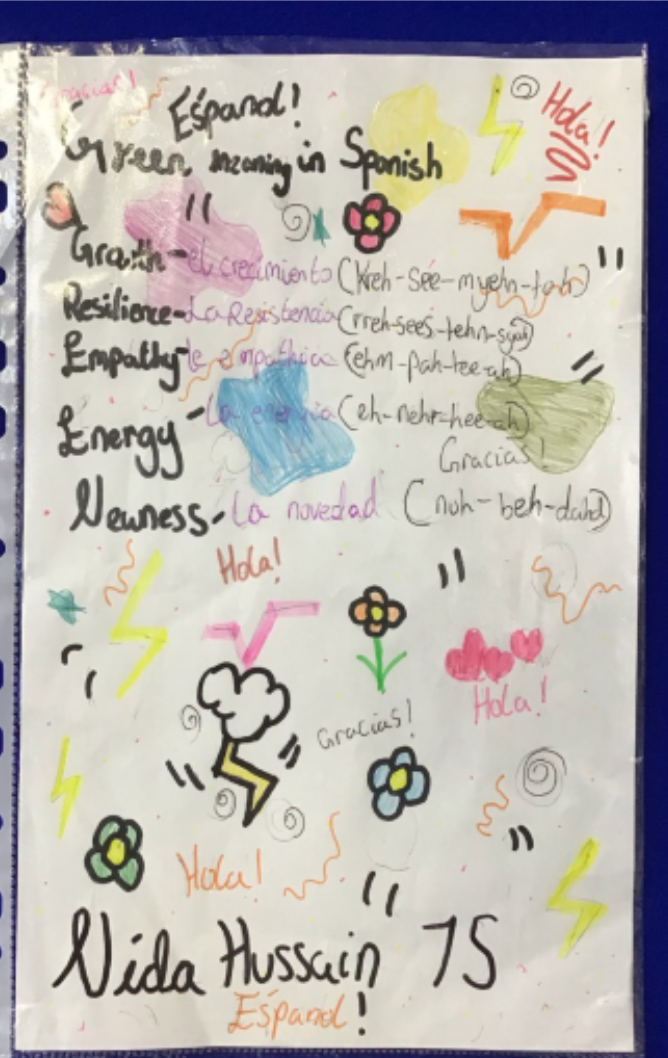 Gracias!
Espanol!
Hola!
Green meaning in Spanish
Growth - el crecimiento (Kreh-see-myehn-toh)
Resilience - La Resistencia (rreh-sees-tehn-syah)
Empathy - le empathica (ehm-pah-tee-ah)
Energy - La energia (eh-nehr-hee-ah)
Gracias!
Newness - La novedad (noh-beh-dahd)
Hola!
Hola!
Gracias!
Hola!
Nida Hussain 7S
Espanol!